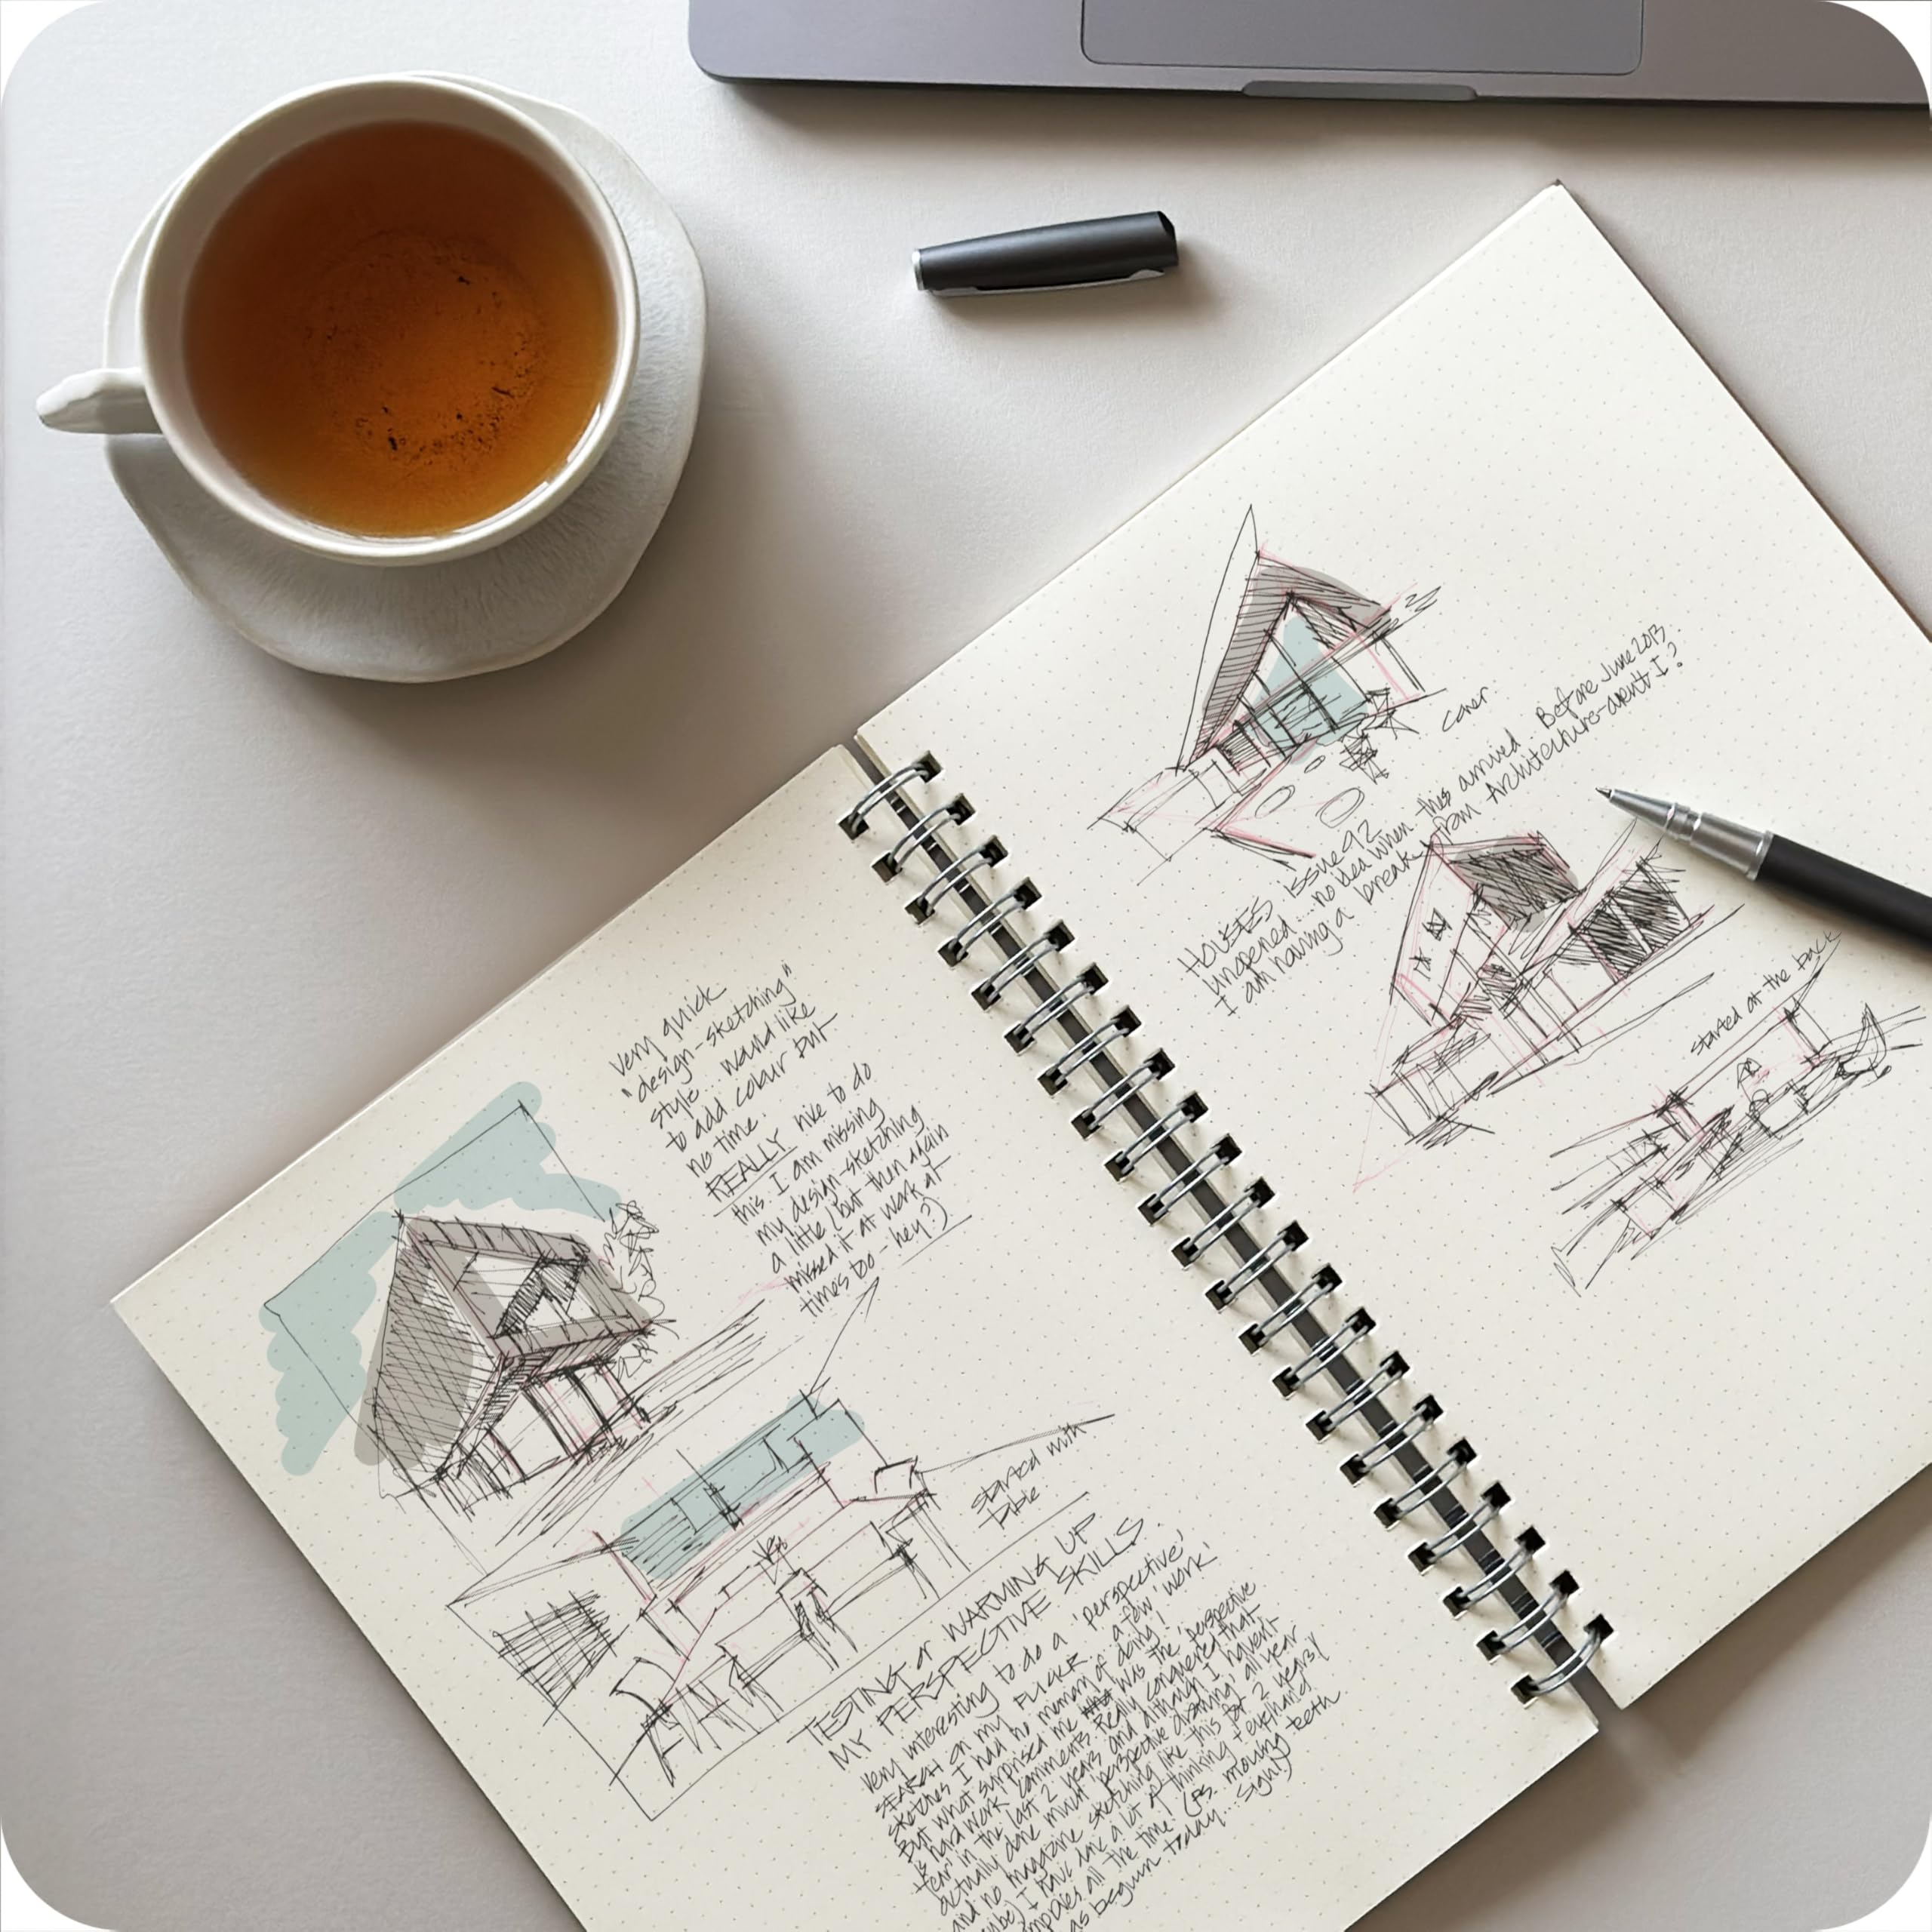 very quick
"design-sketching"
style... would like
to add colour but
no time.
REALLY like to do
this. I am missing
my design-sketching
a little (but then again
missed it at work at
times too - hey?)
started with
table
TESTING or WARMING UP
MY PERSPECTIVE SKILLS.
Very interesting to do a 'perspective'
SEARCH on my FLICKR. a few 'work'
sketches I had no memory of doing!
But what surprised me was the 'perspective
is hard work' comments. Really conquered that
'fear' in the last 2 years and although I haven't
actually done much 'perspective drawing' all year
and no magazine sketching like this for 2 years!
I have done a lot of thinking + euphand
all the time. (PS. moving teeth
as begun today... sigh)
cover
HOUSES issue 92
unopened... no idea when this arrived. Before June 2013
I am having a break from Architecture-aren't I?
started at the back